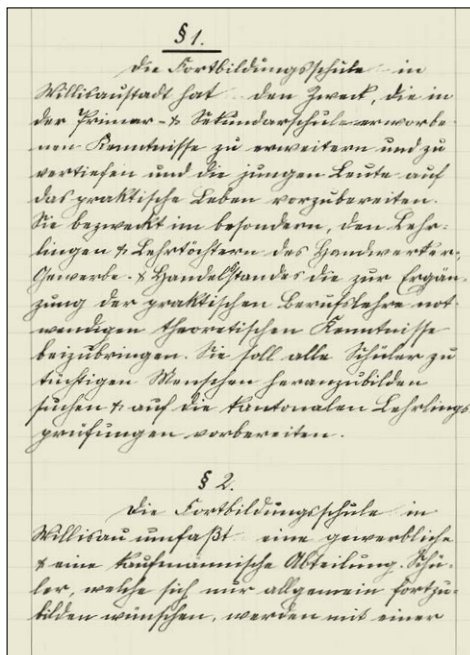 § 1.
Die Fortbildungsschule in
Willisaustadt hat den Zweck, die in
der Primar- & Sekundarschule erworbe-
nen Kenntnisse zu erweitern und zu
vertiefen und die jungen Leute auf
das praktische Leben vorzubereiten.
Sie bezweckt im besondern, den Lehr-
lingen & Lehrtöchtern des Handwerker-
Gewerbe- & Handelsstandes die zur Ergän-
zung der praktischen Berufslehre not-
wendigen theoretischen Kenntnisse
beizubringen. Sie soll alle Schüler zu
tüchtigen Menschen heranzubilden
suchen & auf die kantonalen Lehrlings-
prüfungen vorbereiten.
§ 2.
Die Fortbildungsschule in
Willisau umfaßt eine gewerbliche
& eine kaufmännische Abteilung. Schü-
ler, welche sich nur allgemein fortzu-
bilden wünschen, werden mit einer